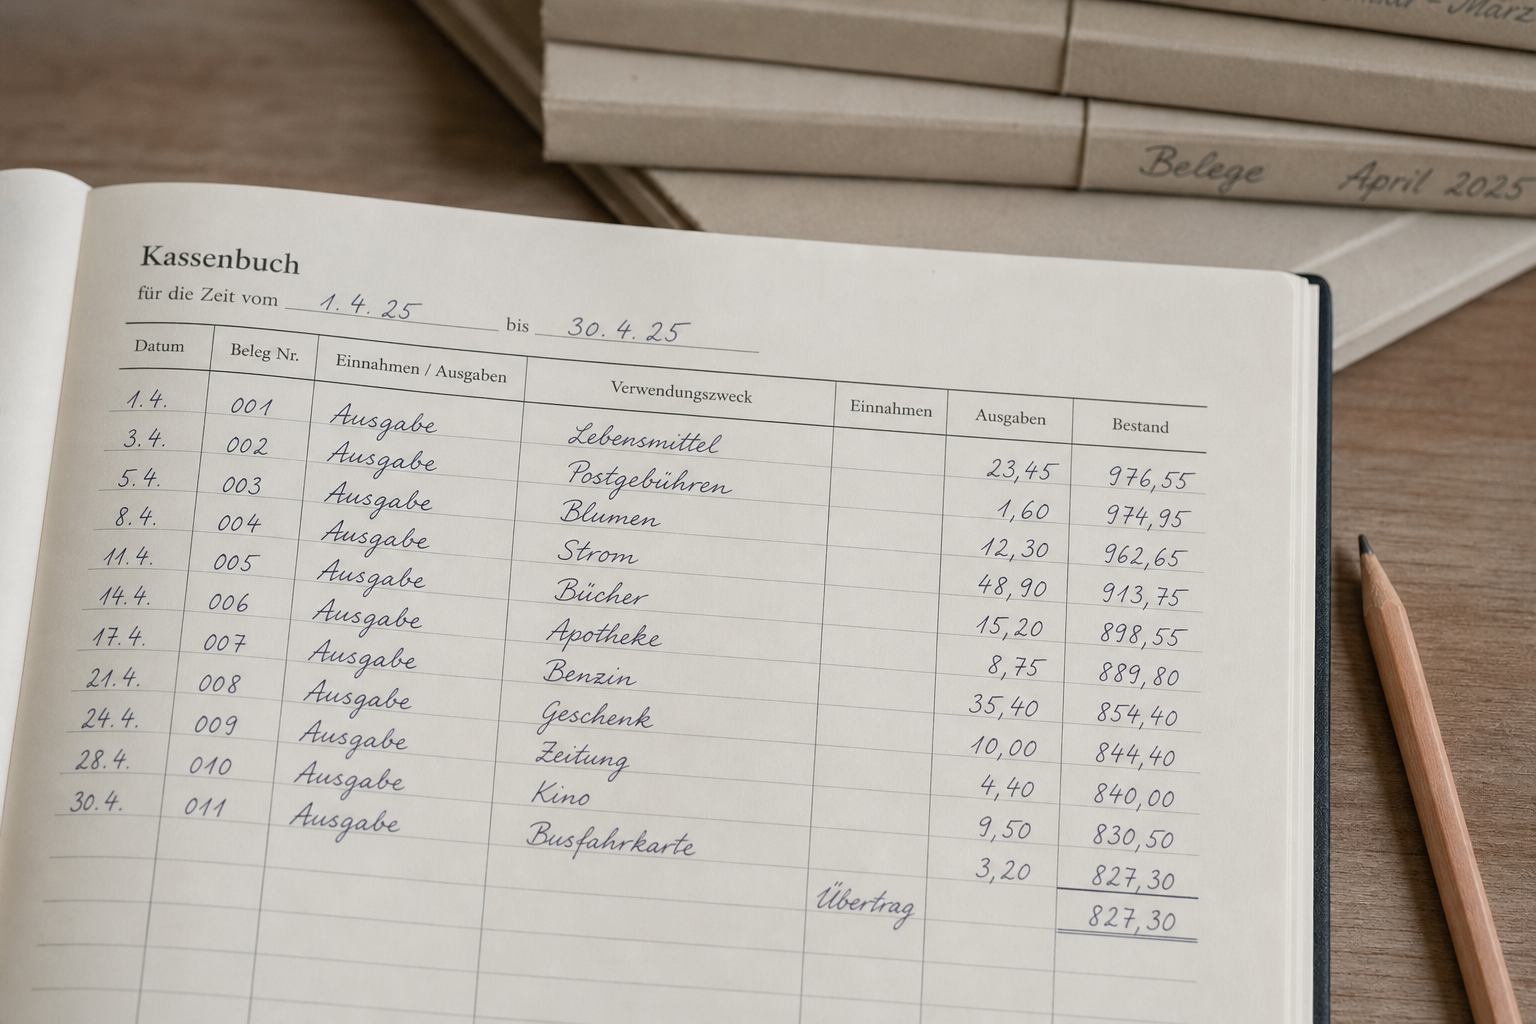 März
Belege April 2025
Kassenbuch
für die Zeit vom 1. 4. 25 bis 30. 4. 25
Datum Beleg Nr. Einnahmen / Ausgaben Verwendungszweck Einnahmen Ausgaben Bestand
1.4. 001 Ausgabe Lebensmittel 23,45 976,55
3.4. 002 Ausgabe Postgebühren 1,60 974,95
5.4. 003 Ausgabe Blumen 12,30 962,65
8.4. 004 Ausgabe Strom 48,90 913,75
11.4. 005 Ausgabe Bücher 15,20 898,55
14.4. 006 Ausgabe Apotheke 8,75 889,80
17.4. 007 Ausgabe Benzin 35,40 854,40
21.4. 008 Ausgabe Geschenk 10,00 844,40
24.4. 009 Ausgabe Zeitung 4,40 840,00
28.4. 010 Ausgabe Kino 9,50 830,50
30.4. 011 Ausgabe Busfahrkarte 3,20 827,30
Übertrag 827,30